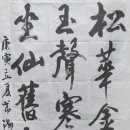 松華金
玉聲寒
坐仙舊
庚寅立夏